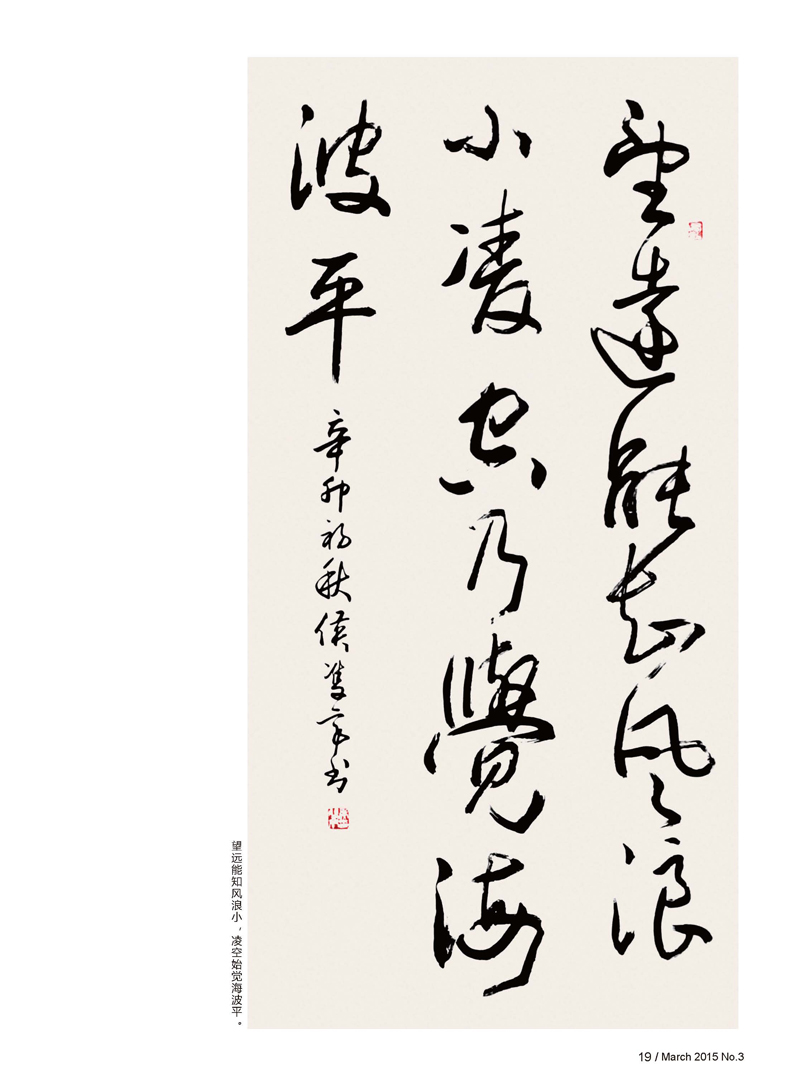 望遠能知風浪
小凌空乃覺海
波平
辛卯初秋侯
望远能知风浪小，凌空始觉海波平。
19 / March 2015 No.3